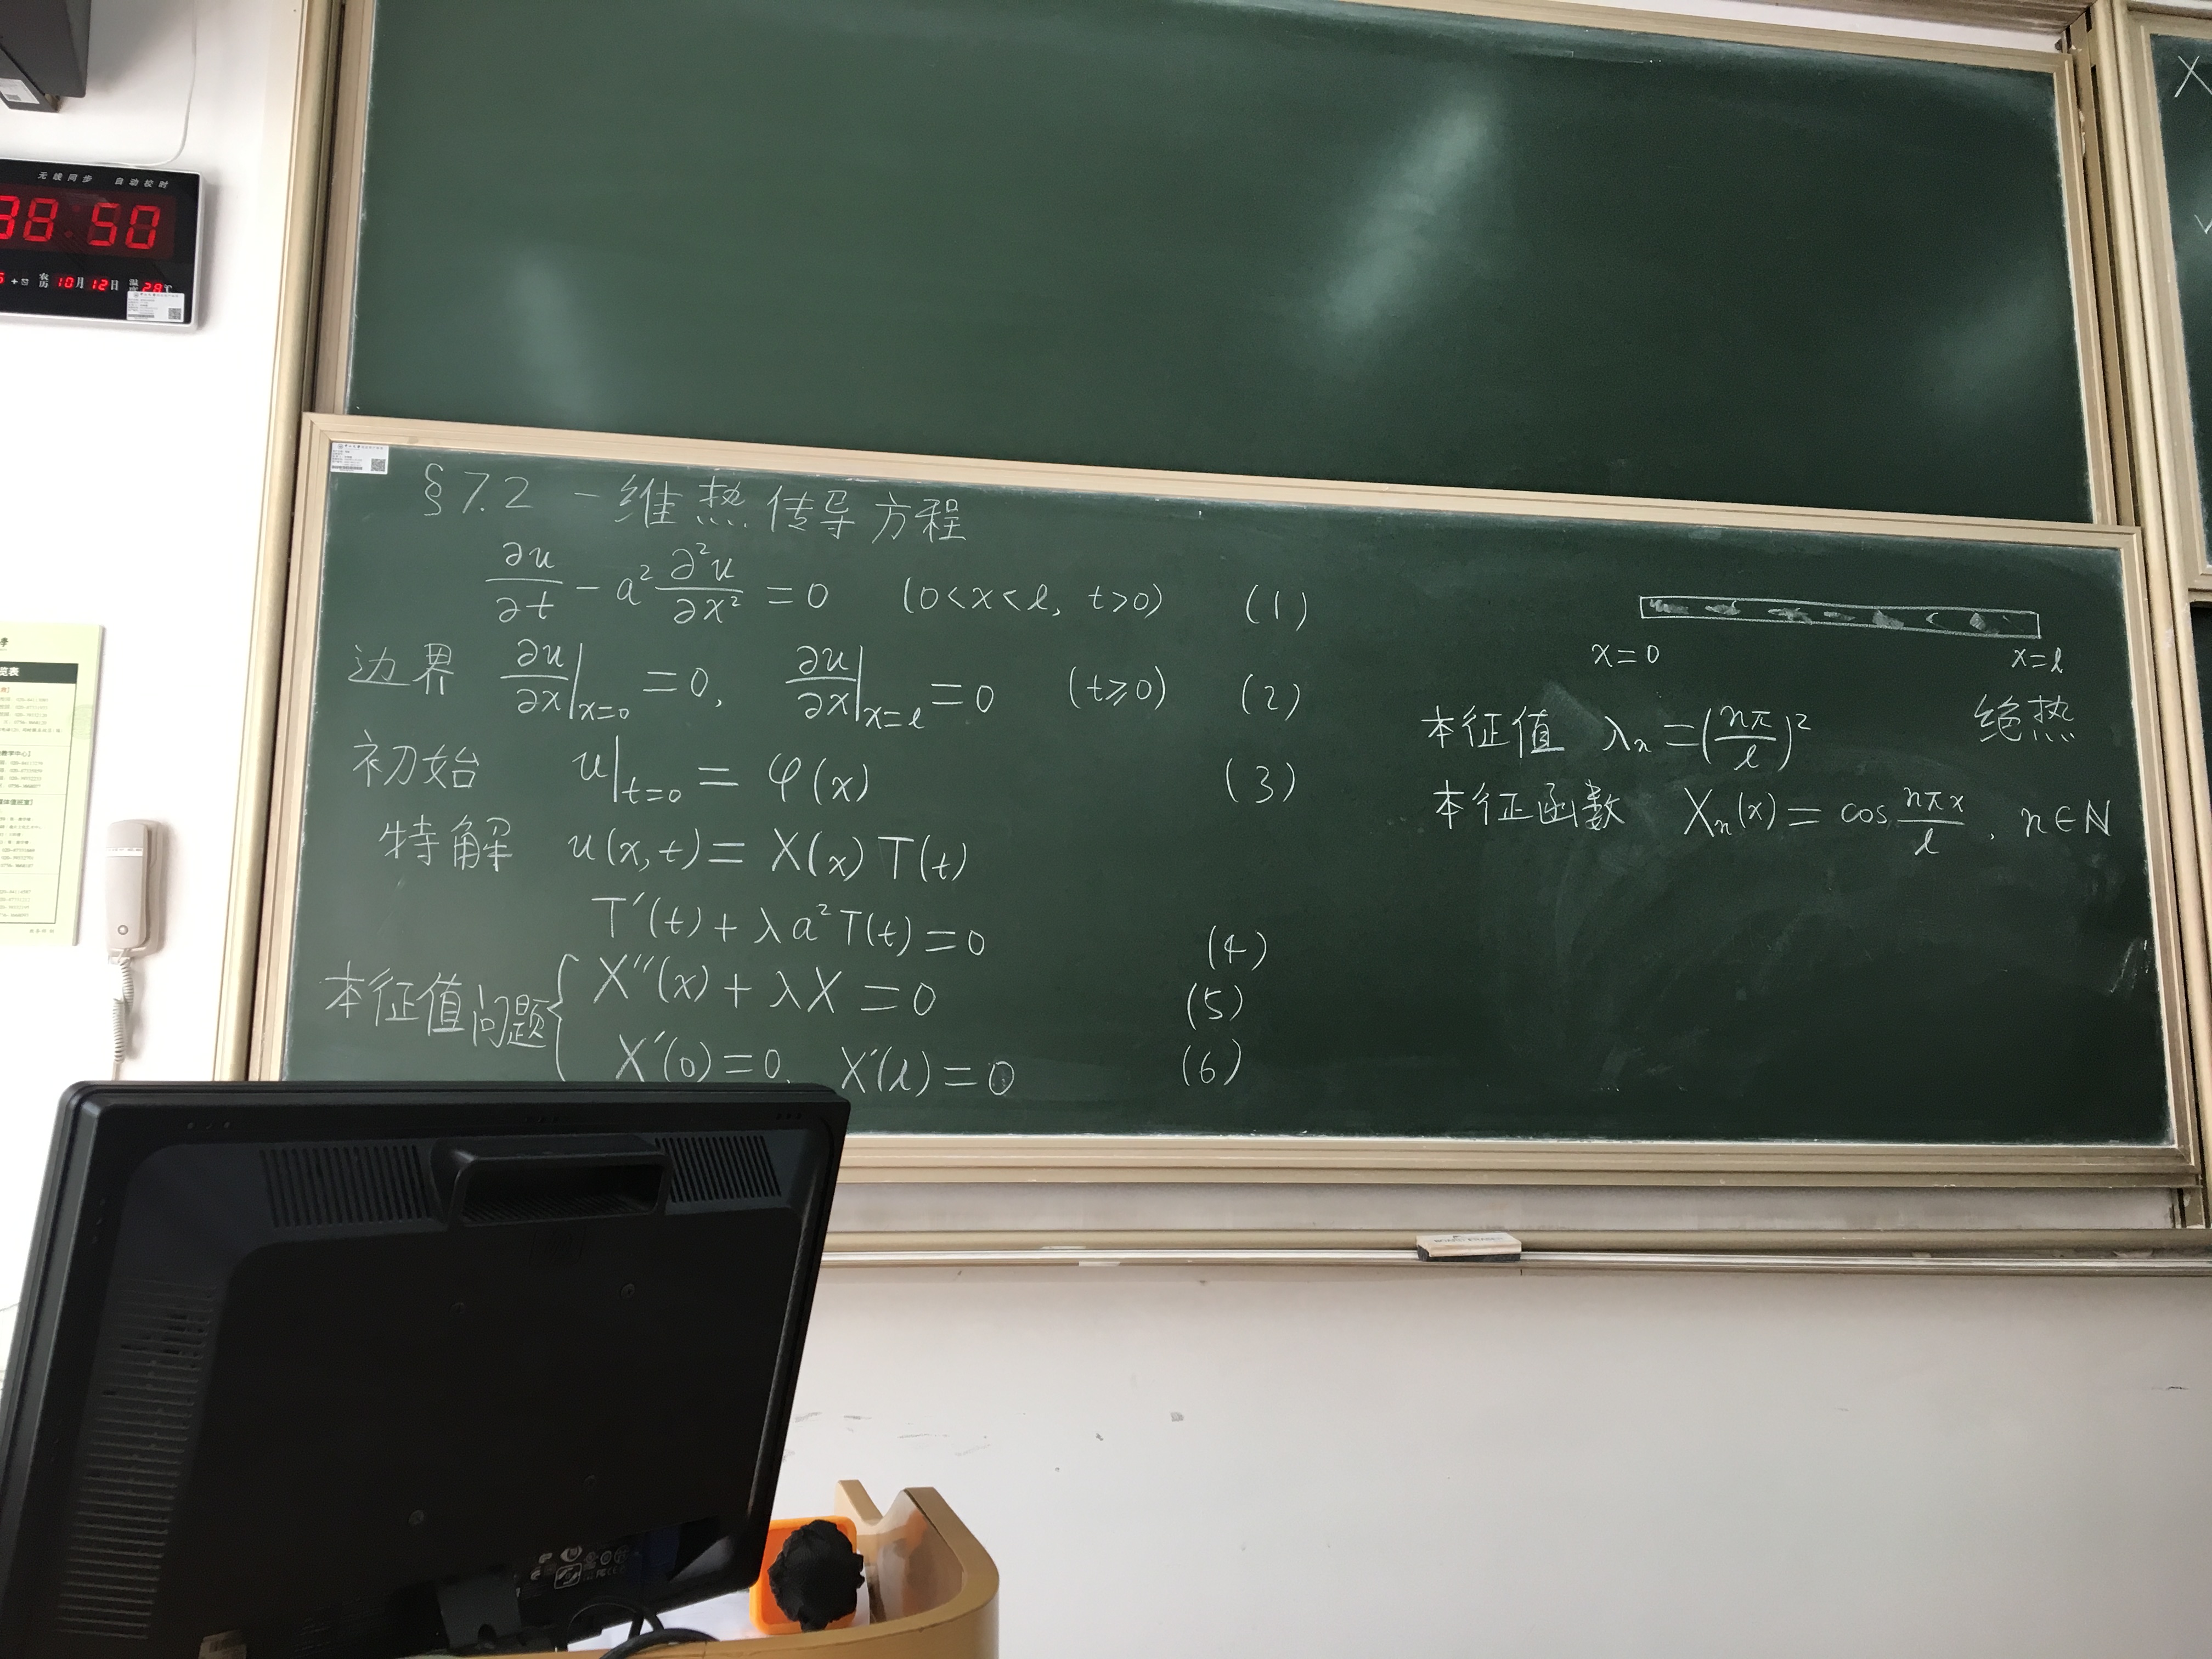 无线同步 自动校时
38:50
农历 10月12日 温度 28℃
§7.2 一维热传导方程
∂u/∂t − a² ∂²u/∂x² = 0 (0<x<l, t>0) (1)
边界 ∂u/∂x|x=0 = 0, ∂u/∂x|x=l = 0 (t≥0) (2)
初始 u|t=0 = φ(x) (3)
特解 u(x,t) = X(x) T(t)
T′(t) + λa²T(t) = 0 (4)
本征值问题 { X″(x) + λX = 0 (5)
X′(0) = 0, X′(l) = 0 (6)
x=0 x=l
绝热
本征值 λn = (nπ/l)²
本征函数 Xn(x) = cos nπx/l , n∈N
X